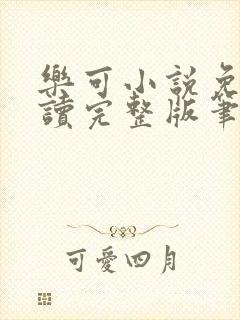 樂可小説免
讀完整版筆
可愛四月